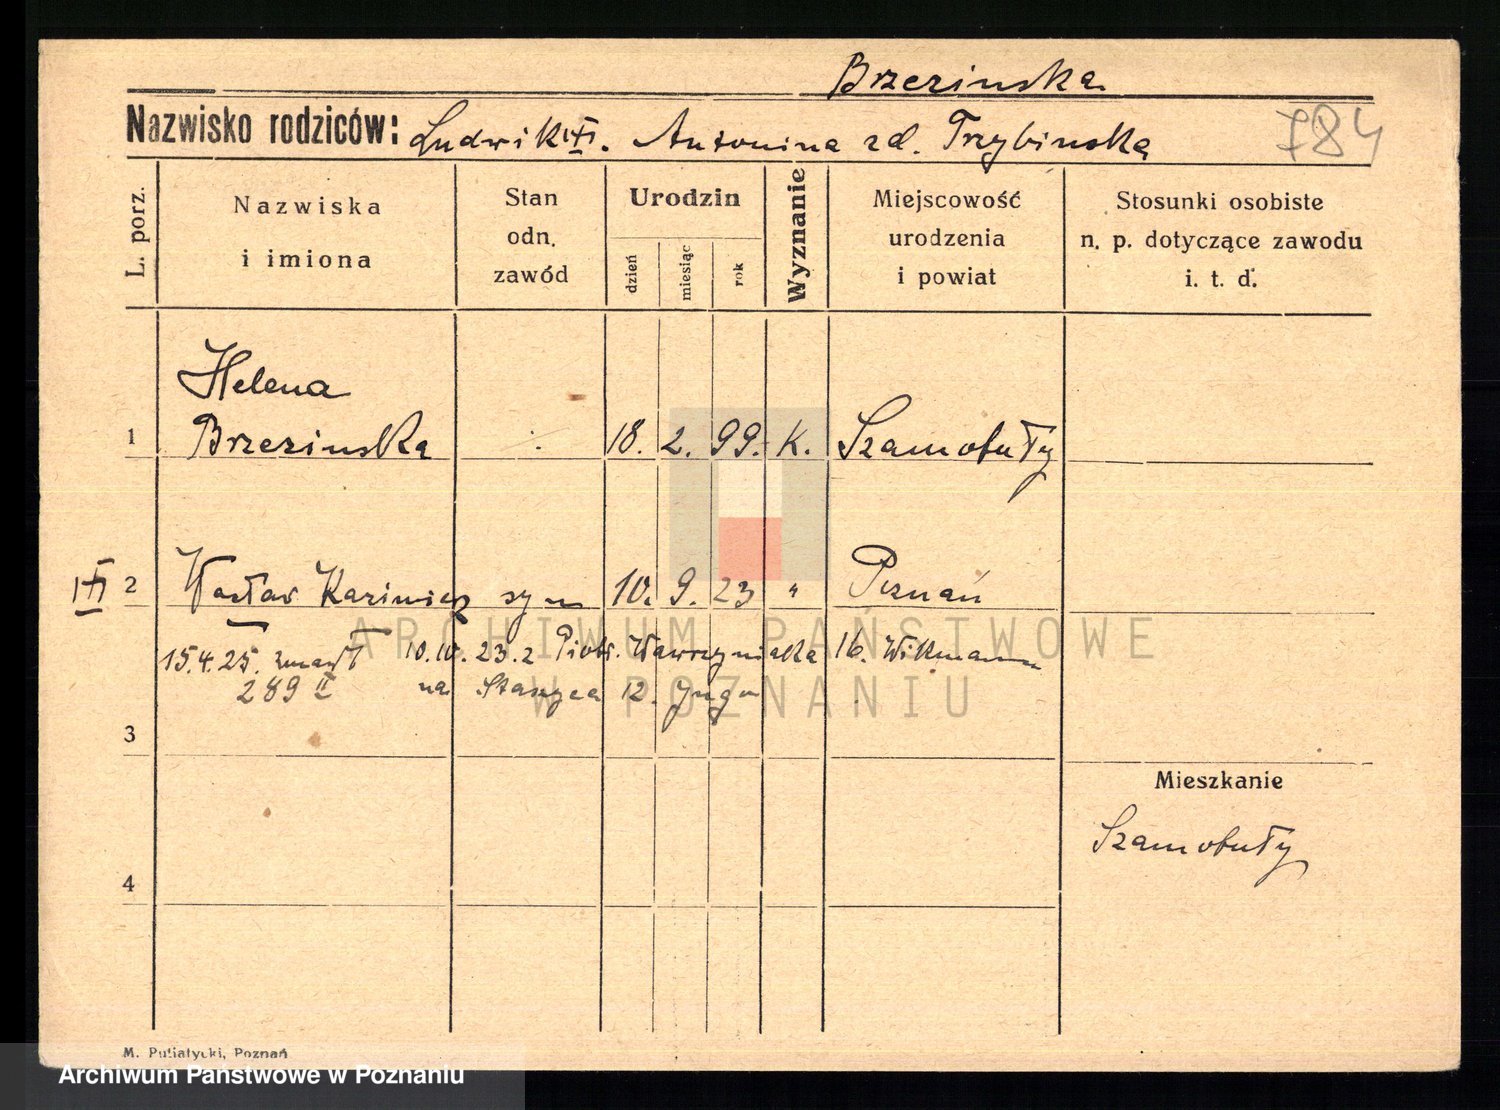 Brzezinska
Nazwisko rodziców: Ludwik. Antonina zd. Trzybinska
784
L. porz.
Nazwiska i imiona
Stan odn. zawód
Urodzin
dzień miesiąc rok
Wyznanie
Miejscowość urodzenia i powiat
Stosunki osobiste n. p. dotyczące zawodu i. t. d.
Helena
1 Brzezinska 18. 2. 99. K. Szamotuły
2 Wacław Kazimierz syn 10. 9. 23 " Poznań
15.4.25. zmarł 10.10.23. z Piotr. Wawrzyniaka 16. Wikmann
289 II na Staszyca 12. Jngo
3
Mieszkanie
Szamotuły
4
M. Putiatycki, Poznań
ARCHIWUM PAŃSTWOWE
W POZNANIU
Archiwum Państwowe w Poznaniu